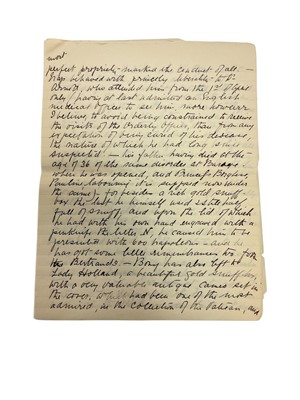 most
perfect propriety marked the conduct of all. —
Bony behaved with princely liberality to Dr.
Arnott, who attended him from the 1st of April
only (having at last admitted an English
medical officer to see him, more however
I believe to avoid being constrained to receive
the visits of the Orderly Officer, than from any
expectation of being cured of his disease
the nature of which he had long since
suspected — his father having died at the
age of 36 of the same disorder at
when he was opened, and Princess Borghese,
Pauline, labouring it is supposed now under
the same) for besides a rich gold snuff-
box the last he himself used & still half
full of snuff, and upon the lid of which
he had with his own hand engraved with a
penknife the letter N, he caused him to be
presented with 600 napoleons — and he
has got some little remembrances too from
the Bertrands. — Bony has also left to
Lady Holland, a beautiful gold snuff box
with a very valuable antique cameo set in
the cover, which had been one of the most
admired, in the Collection of the Vatican, and